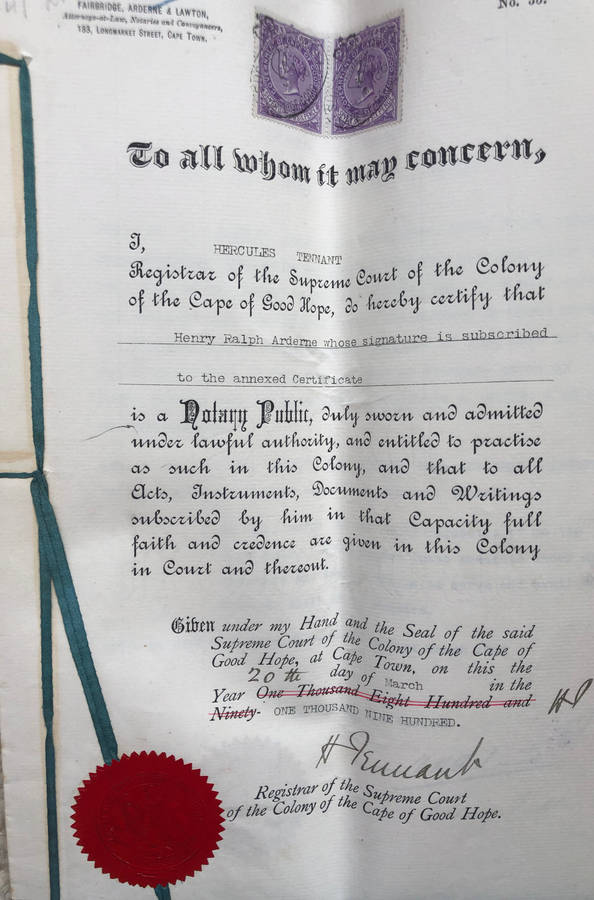 FAIRBRIDGE, ARDERNE & LAWTON,
Attorneys-at-Law, Notaries and Conveyancers,
183, LONGMARKET STREET, CAPE TOWN.
To all whom it may concern,
I, HERCULES TENNANT
Registrar of the Supreme Court of the Colony
of the Cape of Good Hope, do hereby certify that
Henry Ralph Arderne whose signature is subscribed
to the annexed Certificate
is a Notary Public, duly sworn and admitted
under lawful authority, and entitled to practise
as such in this Colony, and that to all
Acts, Instruments, Documents and Writings
subscribed by him in that Capacity full
faith and credence are given in this Colony
in Court and thereout.
Given under my Hand and the Seal of the said
Supreme Court of the Colony of the Cape of
Good Hope, at Cape Town, on this the
20th day of March in the
Year One Thousand Eight Hundred and
Ninety- ONE THOUSAND NINE HUNDRED.
H Tennant
Registrar of the Supreme Court
of the Colony of the Cape of Good Hope.